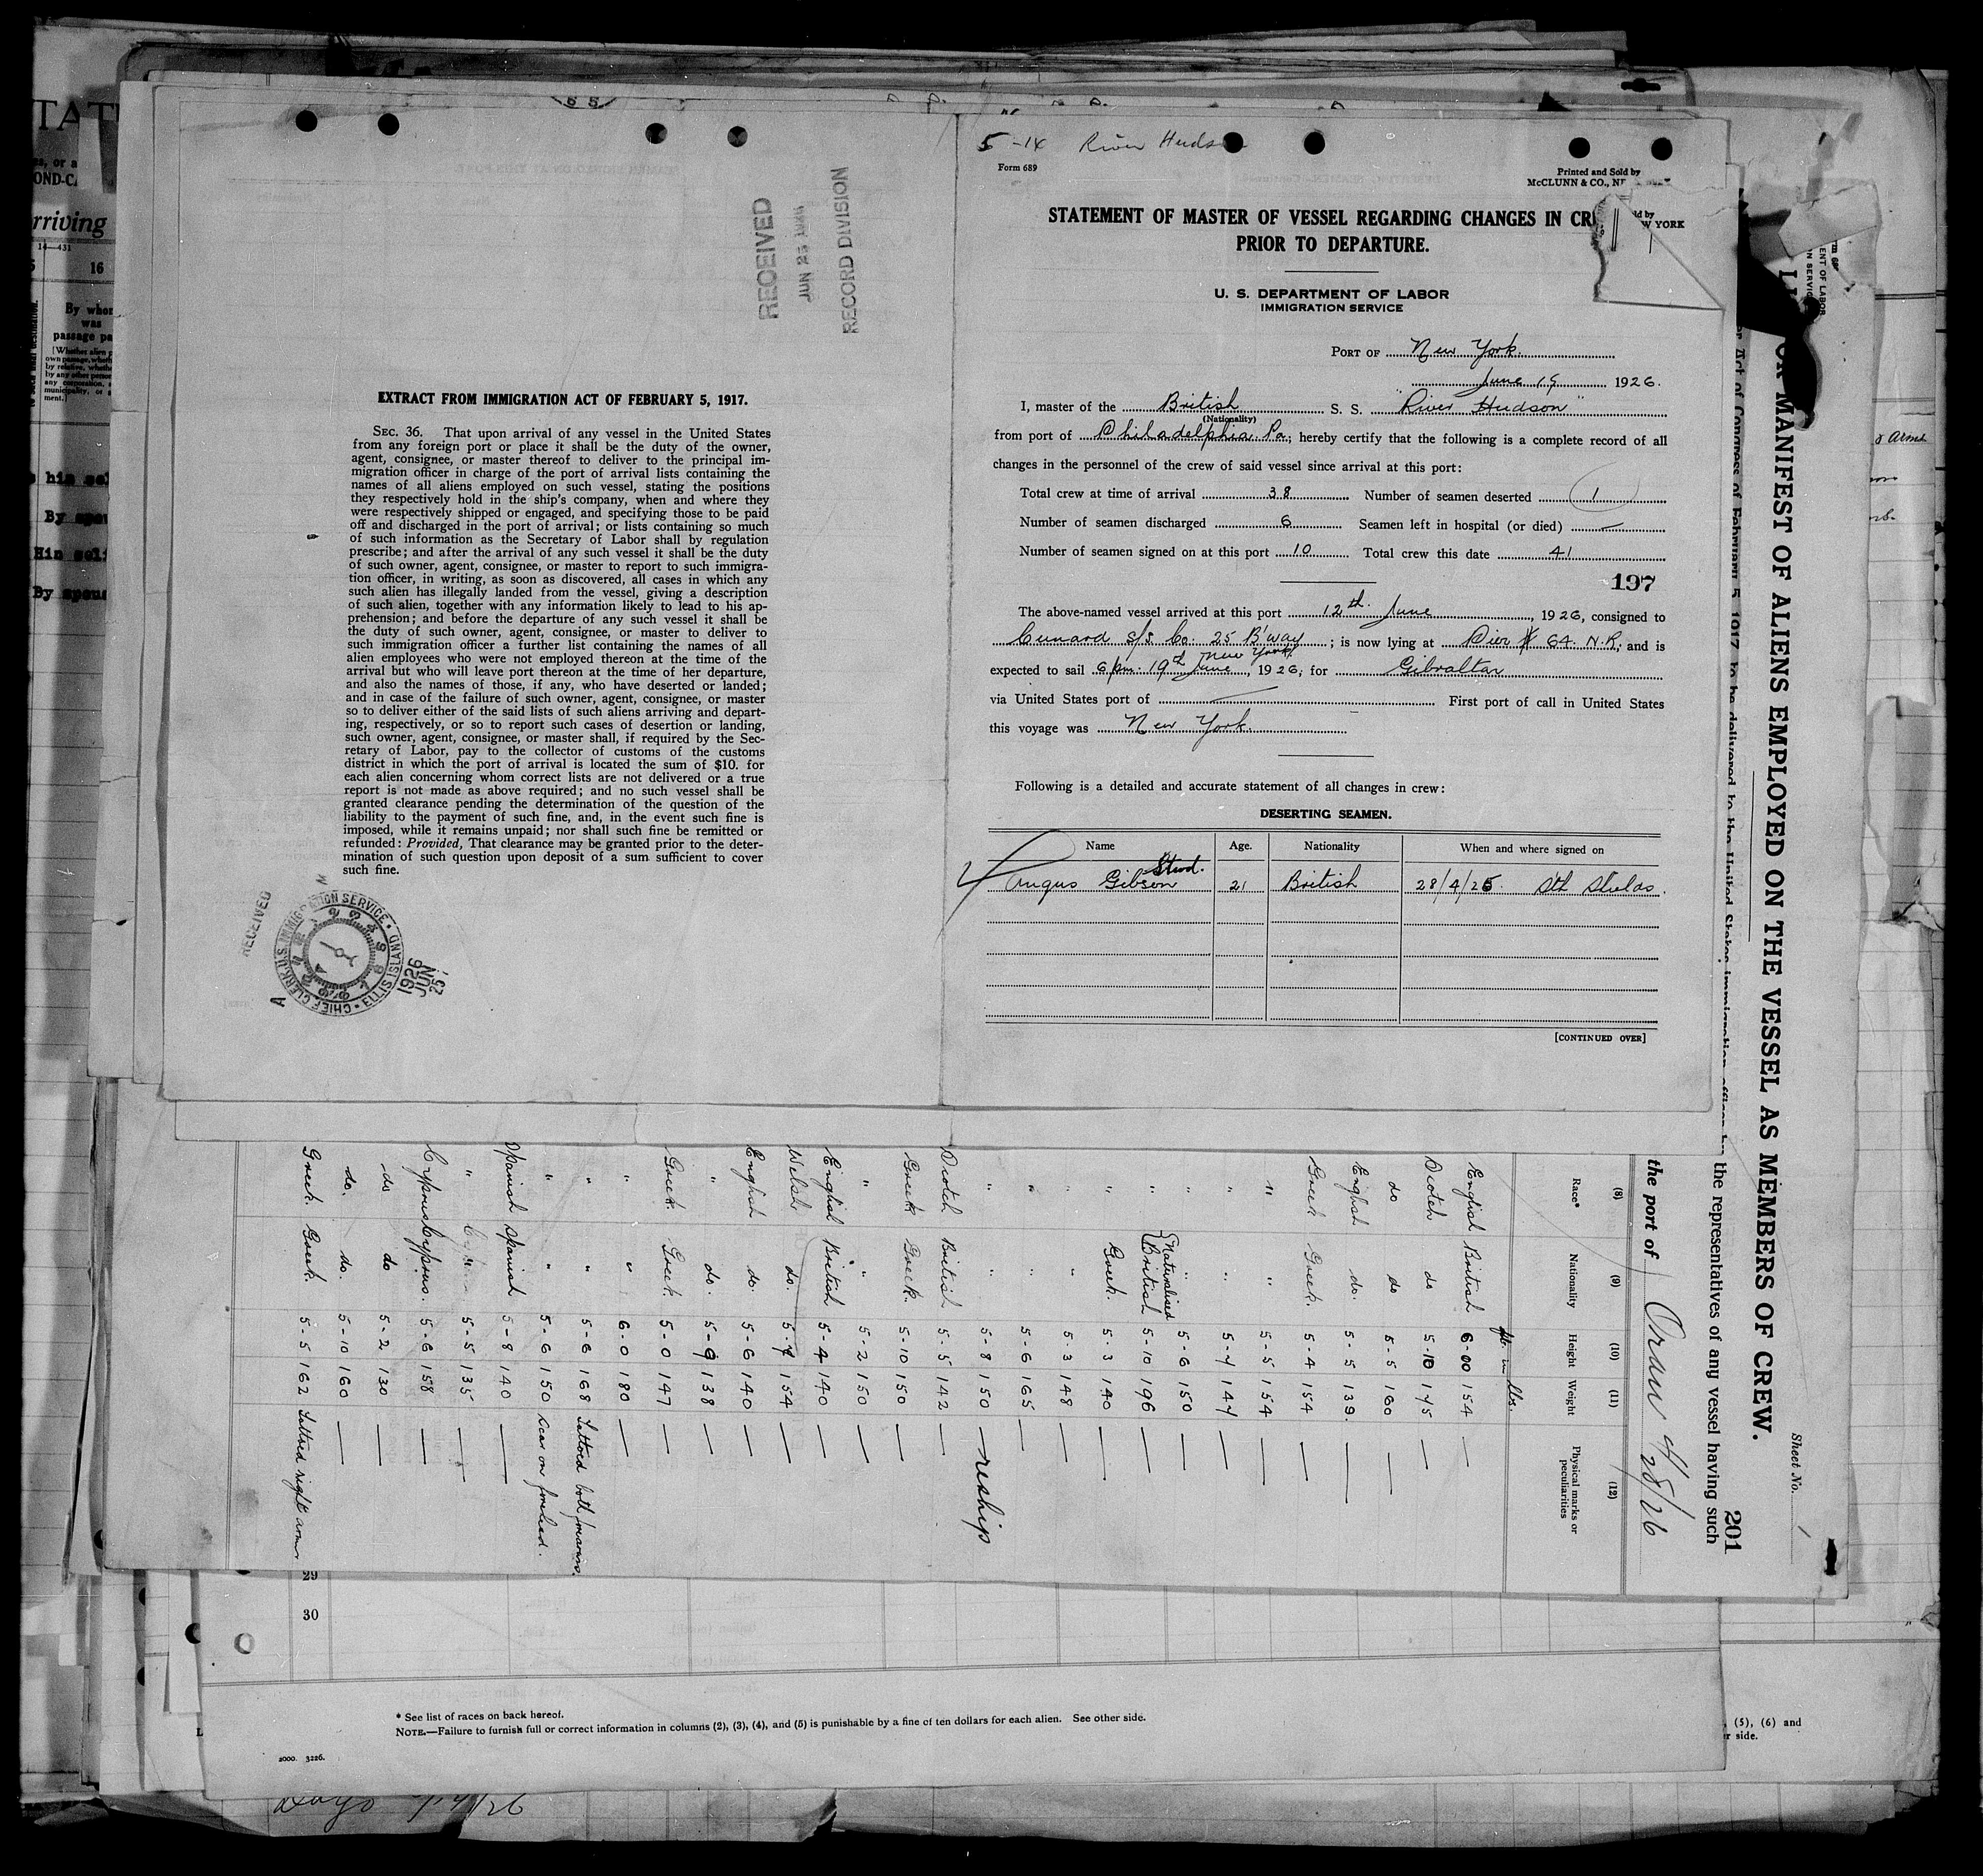 RECEIVED
JUN 25 1926
RECORD DIVISION
EXTRACT FROM IMMIGRATION ACT OF FEBRUARY 5, 1917.
SEC. 36. That upon arrival of any vessel in the United States
from any foreign port or place it shall be the duty of the owner,
agent, consignee, or master thereof to deliver to the principal im-
migration officer in charge of the port of arrival lists containing the
names of all aliens employed on such vessel, stating the positions
they respectively hold in the ship's company, when and where they
were respectively shipped or engaged, and specifying those to be paid
off and discharged in the port of arrival; or lists containing so much
of such information as the Secretary of Labor shall by regulation
prescribe; and after the arrival of any such vessel it shall be the duty
of such owner, agent, consignee, or master to report to such immigra-
tion officer, in writing, as soon as discovered, all cases in which any
such alien has illegally landed from the vessel, giving a description
of such alien, together with any information likely to lead to his ap-
prehension; and before the departure of any such vessel it shall be
the duty of such owner, agent, consignee, or master to deliver to
such immigration officer a further list containing the names of all
alien employees who were not employed thereon at the time of the
arrival but who will leave port thereon at the time of her departure,
and also the names of those, if any, who have deserted or landed;
and in case of the failure of such owner, agent, consignee, or master
so to deliver either of the said lists of such aliens arriving and depart-
ing, respectively, or so to report such cases of desertion or landing,
such owner, agent, consignee, or master shall, if required by the Sec-
retary of Labor, pay to the collector of customs of the customs
district in which the port of arrival is located the sum of $10. for
each alien concerning whom correct lists are not delivered or a true
report is not made as above required; and no such vessel shall be
granted clearance pending the determination of the question of the
liability to the payment of such fine, and, in the event such fine is
imposed, while it remains unpaid; nor shall such fine be remitted or
refunded: Provided, That clearance may be granted prior to the deter-
mination of such question upon deposit of a sum sufficient to cover
such fine.
RECEIVED
CHIEF CLERK U.S. IMMIGRATION SERVICE • ELLIS ISLAND
1926
JUN
25
5-14 River Huds
Form 689
Printed and Sold by
McCLUNN & CO., NE
W YORK
STATEMENT OF MASTER OF VESSEL REGARDING CHANGES IN CR
PRIOR TO DEPARTURE.
U. S. DEPARTMENT OF LABOR
IMMIGRATION SERVICE
PORT OF New York.
June 19 1926.
I, master of the British S. S. "River Hudson"
(Nationality)
from port of Philadelphia. Pa; hereby certify that the following is a complete record of all
changes in the personnel of the crew of said vessel since arrival at this port:
Total crew at time of arrival 38 Number of seamen deserted 1
Number of seamen discharged 6 Seamen left in hospital (or died) —
Number of seamen signed on at this port 10 Total crew this date 41
197
The above-named vessel arrived at this port 12th June, 1926, consigned to
Cunard S/S. Co. 25 B'way New York; is now lying at Pier # 64. N.R; and is
expected to sail 6 pm. 19th June, 1926; for Gibraltar
via United States port of — First port of call in United States
this voyage was New York.
Following is a detailed and accurate statement of all changes in crew:
DESERTING SEAMEN.
Name Age. Nationality When and where signed on
Angus Gibson Stwd. 21 British 28/4/26 Sth Shields.
[CONTINUED OVER]
MANIFEST OF ALIENS EMPLOYED ON THE VESSEL AS MEMBERS OF CREW.
Sheet No. 1
201
the representatives of any vessel having such
the port of Oran 4/28/26
(8) (9) (10) (11) (12)
Race* Nationality Height Weight Physical marks or peculiarities
ft. in lbs.
English British 6-00 154 —
Scotch do 5-10 145 —
do do 5-5 160 —
English do. 5-5 139. —
Greek Greek. 5-4 154 —
" " 5-5 154 —
" " 5-7 144 —
" " 5-6 150 —
" Naturalised British 5-10 196 —
" Greek. 5-3 140 —
" " 5-3 148 —
" " 5-6 165 —
" " 5-8 150 — reship
Scotch British 5-5 142 —
Greek Greek. 5-10 150 —
" " 5-2 150 —
English British 5-4 140 —
Welsh do. 5-7 154 —
English do. 5-6 140 —
" do. 5-9 138 —
Greek. Greek. 5-0 147 —
" " 6-0 180 —
" " 5-6 168 Tattoed both forearms.
" " 5-6 150 Scar on forehead.
Spanish Spanish 5-8 140 —
" " 5-5 135 —
Cyprus Cyprus. 5-6 158 —
do do 5-2 130 —
do. do. 5-10 160 —
Greek. Greek. 5-5 162 Tattoed right arm
29
30
* See list of races on back hereof.
NOTE.—Failure to furnish full or correct information in columns (2), (3), (4), and (5) is punishable by a fine of ten dollars for each alien. See other side.
2000. 3226.
, (5), (6) and
r side.
rriving
14—431
16
By whom
was
passage pa
By spou
Him self
By spous